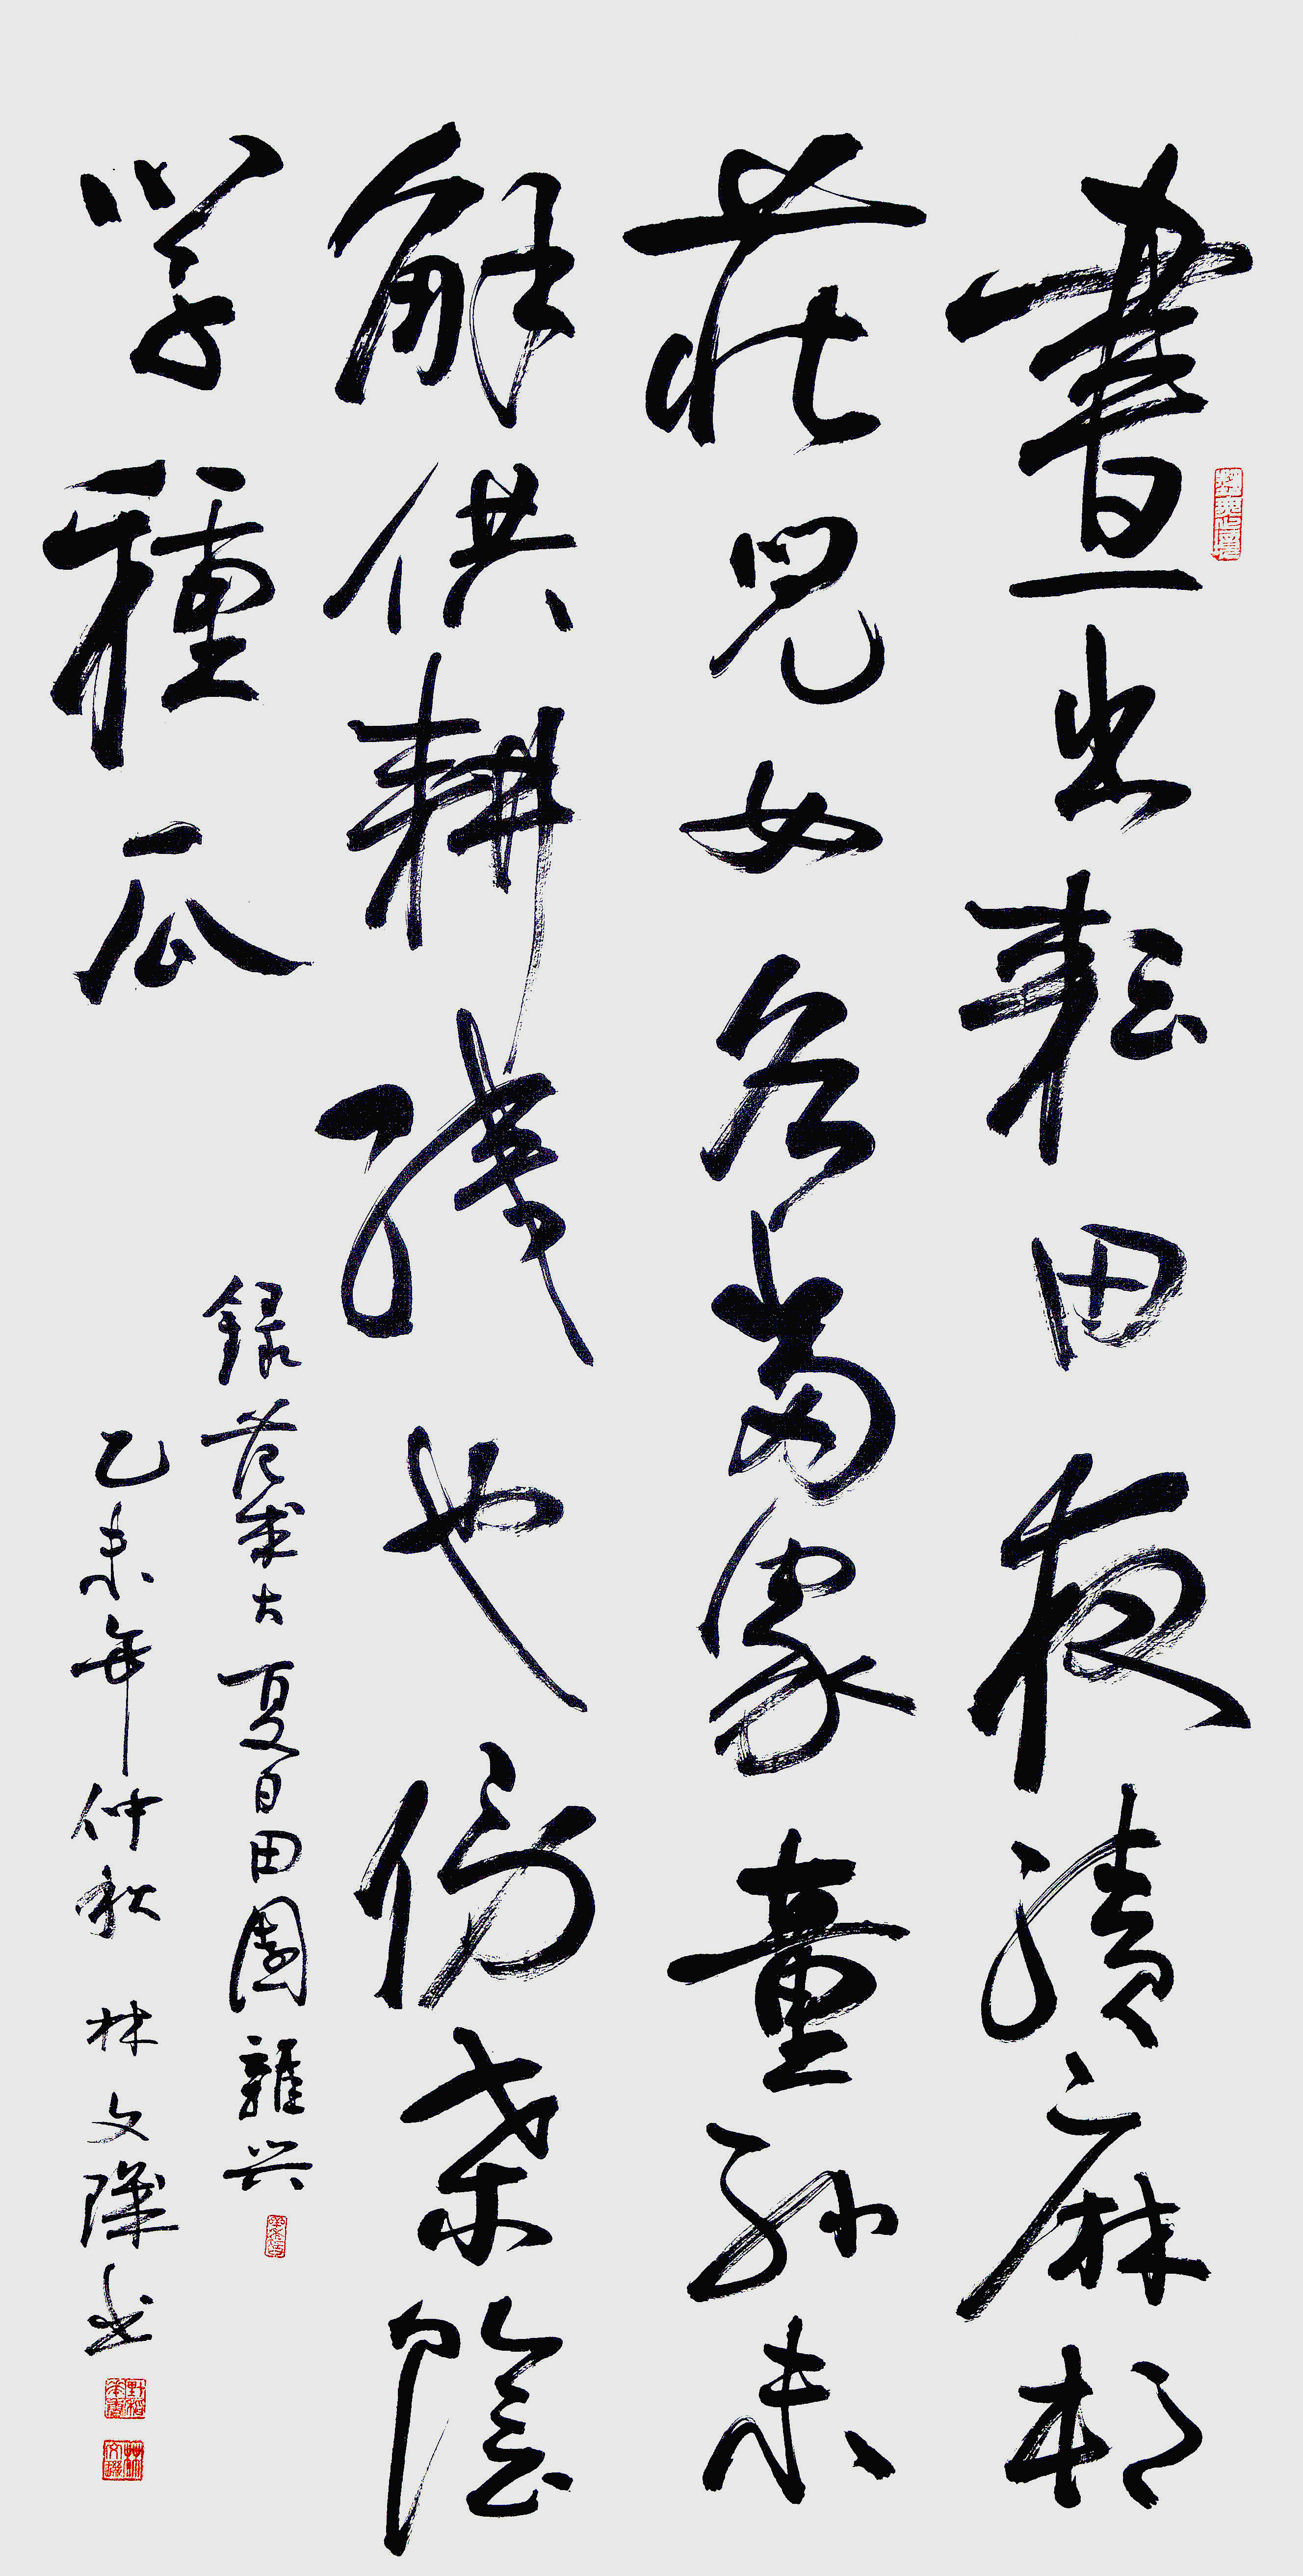 晝出耘田夜績麻村
莊兒女各當家童孫未
解供耕織也傍桑陰
學種瓜
錄范成大夏日田園雜兴
乙未年仲秋 林文